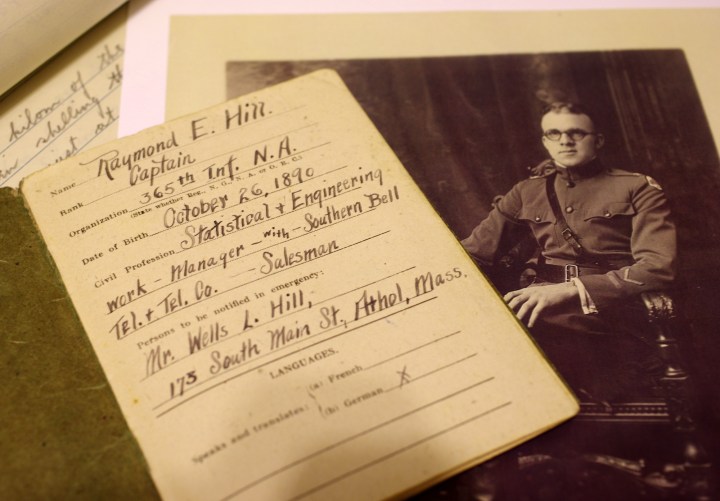 kilom of the
shelling th
just at
Name Raymond E. Hill.
Rank Captain
Organization 365th Inf. N.A.
(State whether Reg., N. G., N. A. or O. R. C.)
Date of Birth October 26, 1890
Civil Profession Statistical & Engineering
work - Manager - with - Southern Bell
Tel. & Tel. Co. - Salesman
Persons to be notified in emergency:
Mr. Wells L. Hill,
175 South Main St., Athol, Mass.
LANGUAGES.
Speaks and translates:
(a) French
(b) German X